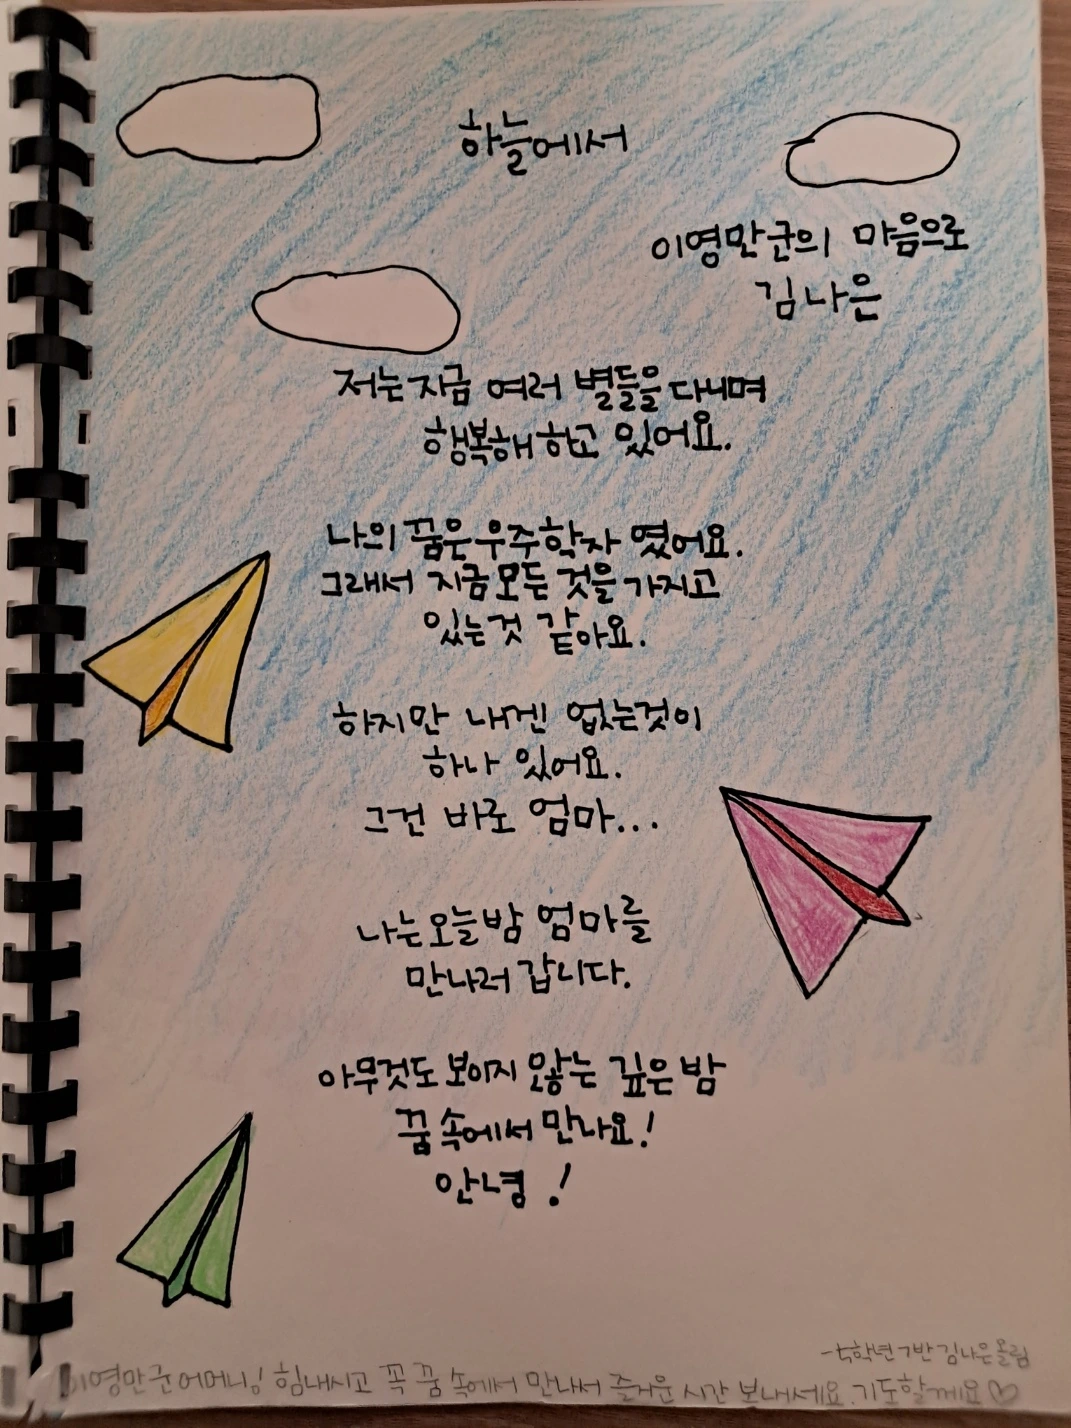 하늘에서
이영만군의 마음으로
김나은
저는 지금 여러 별들을 다니며
행복해 하고 있어요.
나의 꿈은 우주학자 였어요.
그래서 지금 모든 것을 가지고
있는것 같아요.
하지만 내겐 없는것이
하나 있어요.
그건 바로 엄마...
나는 오늘밤 엄마를
만나러 갑니다.
아무것도 보이지 않는 깊은 밤
꿈 속에서 만나요!
안녕!
학년 7반 김나은올림
이영만군어머니! 힘내시고 꼭 꿈 속에서 만나서 즐거운 시간 보내세요. 기도할께요♡